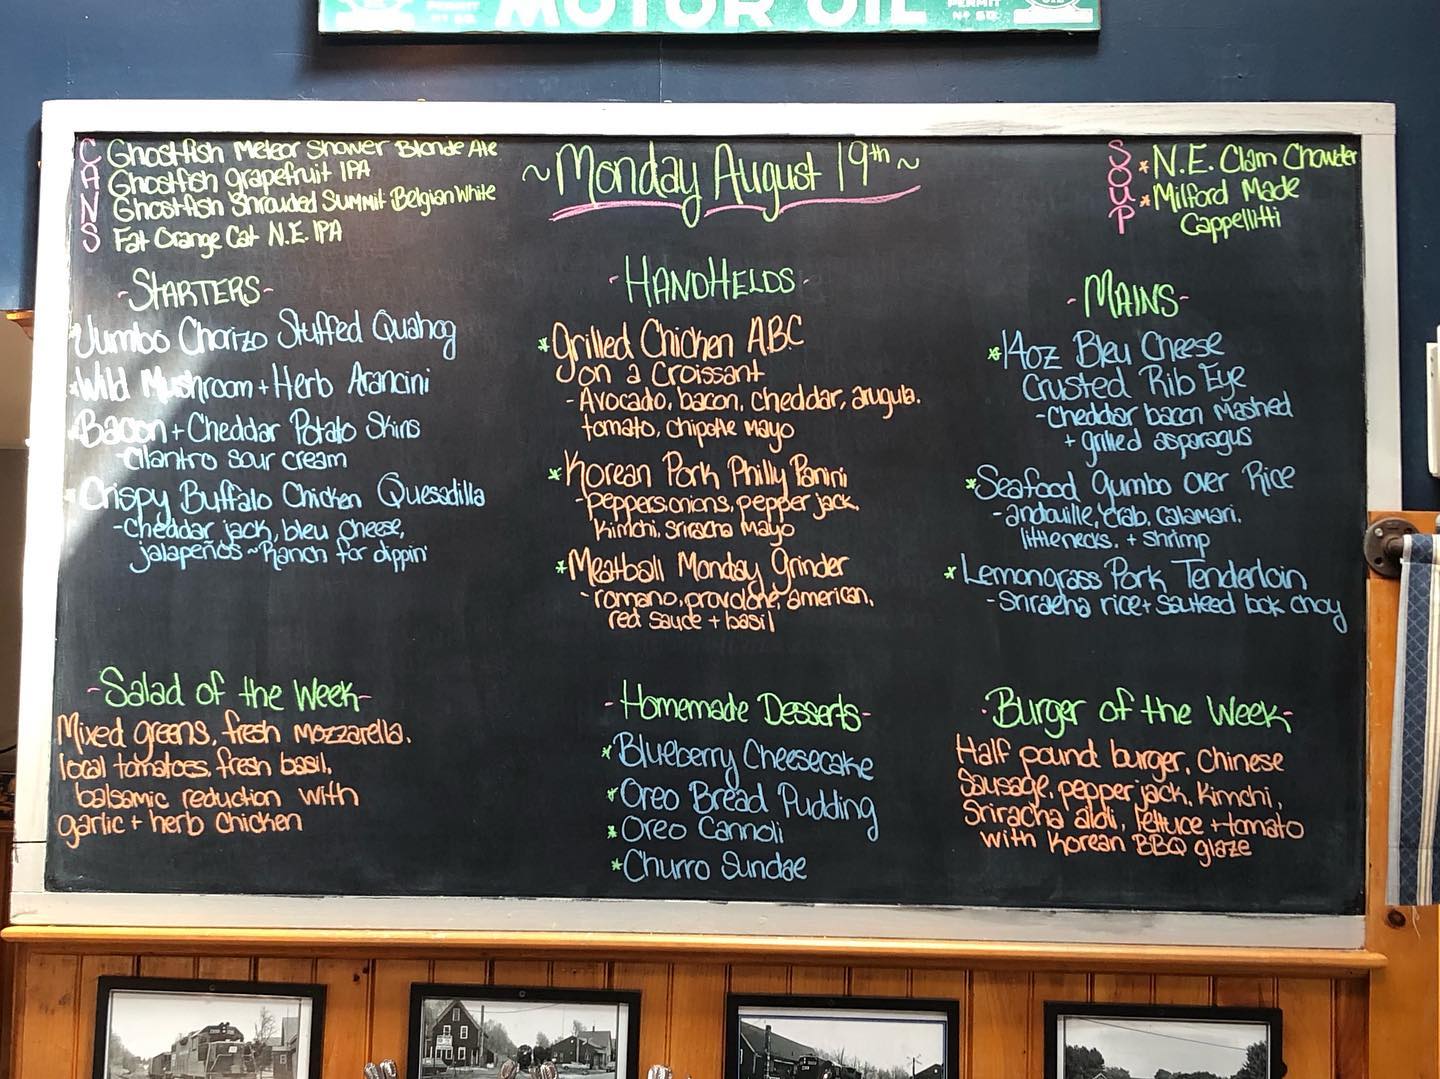 MOTOR OIL
PERMIT
Nº 60.
PERMIT
Nº 60.
CANS
Ghostfish Meteor Shower Blonde Ale
Ghostfish grapefruit IPA
Ghostfish Shrouded Summit Belgian White
Fat Orange Cat N.E. IPA
~Monday August 19th~
SOUP
*N.E. Clam Chowder
*Milford Made
Cappellitti
-STARTERS-
*Jumbo Chorizo Stuffed Quahog
*Wild Mushroom + Herb Arancini
*Bacon + Cheddar Potato Skins
-Cilantro sour cream
*Crispy Buffalo Chicken Quesadilla
-cheddar jack, bleu cheese,
jalapeños ~ Ranch for dippin'
-HANDHELDS-
*Grilled Chicken ABC
on a Croissant
-Avocado, bacon, cheddar, arugula,
tomato, chipotle mayo
*Korean Pork Philly Panini
-peppers, onions, pepper jack,
kimchi, sriracha mayo
*Meatball Monday Grinder
-romano, provolone, american,
red sauce + basil
-MAINS-
*14oz Bleu Cheese
Crusted Rib Eye
-cheddar bacon mashed
+ grilled asparagus
*Seafood Gumbo over Rice
-andouille, crab, calamari,
littlenecks, + shrimp
*Lemongrass Pork Tenderloin
-sriracha rice + sauteed bok choy
-Salad of the Week-
Mixed greens, fresh mozzarella,
local tomatoes, fresh basil,
balsamic reduction with
garlic + herb chicken
-Homemade Desserts-
*Blueberry Cheesecake
*Oreo Bread Pudding
*Oreo Cannoli
*Churro Sundae
-Burger of the Week-
Half pound burger, Chinese
Sausage, pepper jack, kimchi,
Sriracha aioli, lettuce + tomato
with Korean BBQ glaze